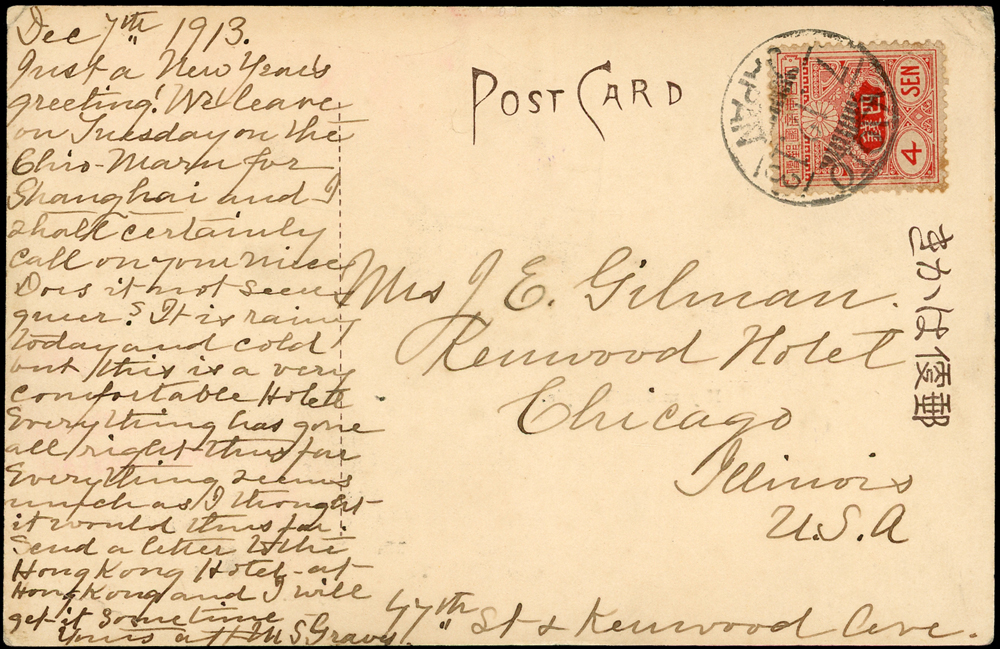 Dec 7th 1913.
Just a New Year's
greeting! We leave
on Tuesday on the
Chio-Maru for
Shanghai and I
shall certainly
call on your niece
Does it not seem
queer? It is rainy
today and cold
but this is a very
comfortable Hotel
Everything has gone
all right thus far
Everything seems
much as I thought
it would thus far.
Send a letter to the
Hong Kong Hotel at
Hong Kong and I will
get it sometime
Yours aff M S
POST CARD
JAPAN
4 SEN
Mrs J. E. Gilman.
Kenwood Hotel
Chicago
Illinois
U.S.A
47th St & Kenwood Ave.
きかは便郵